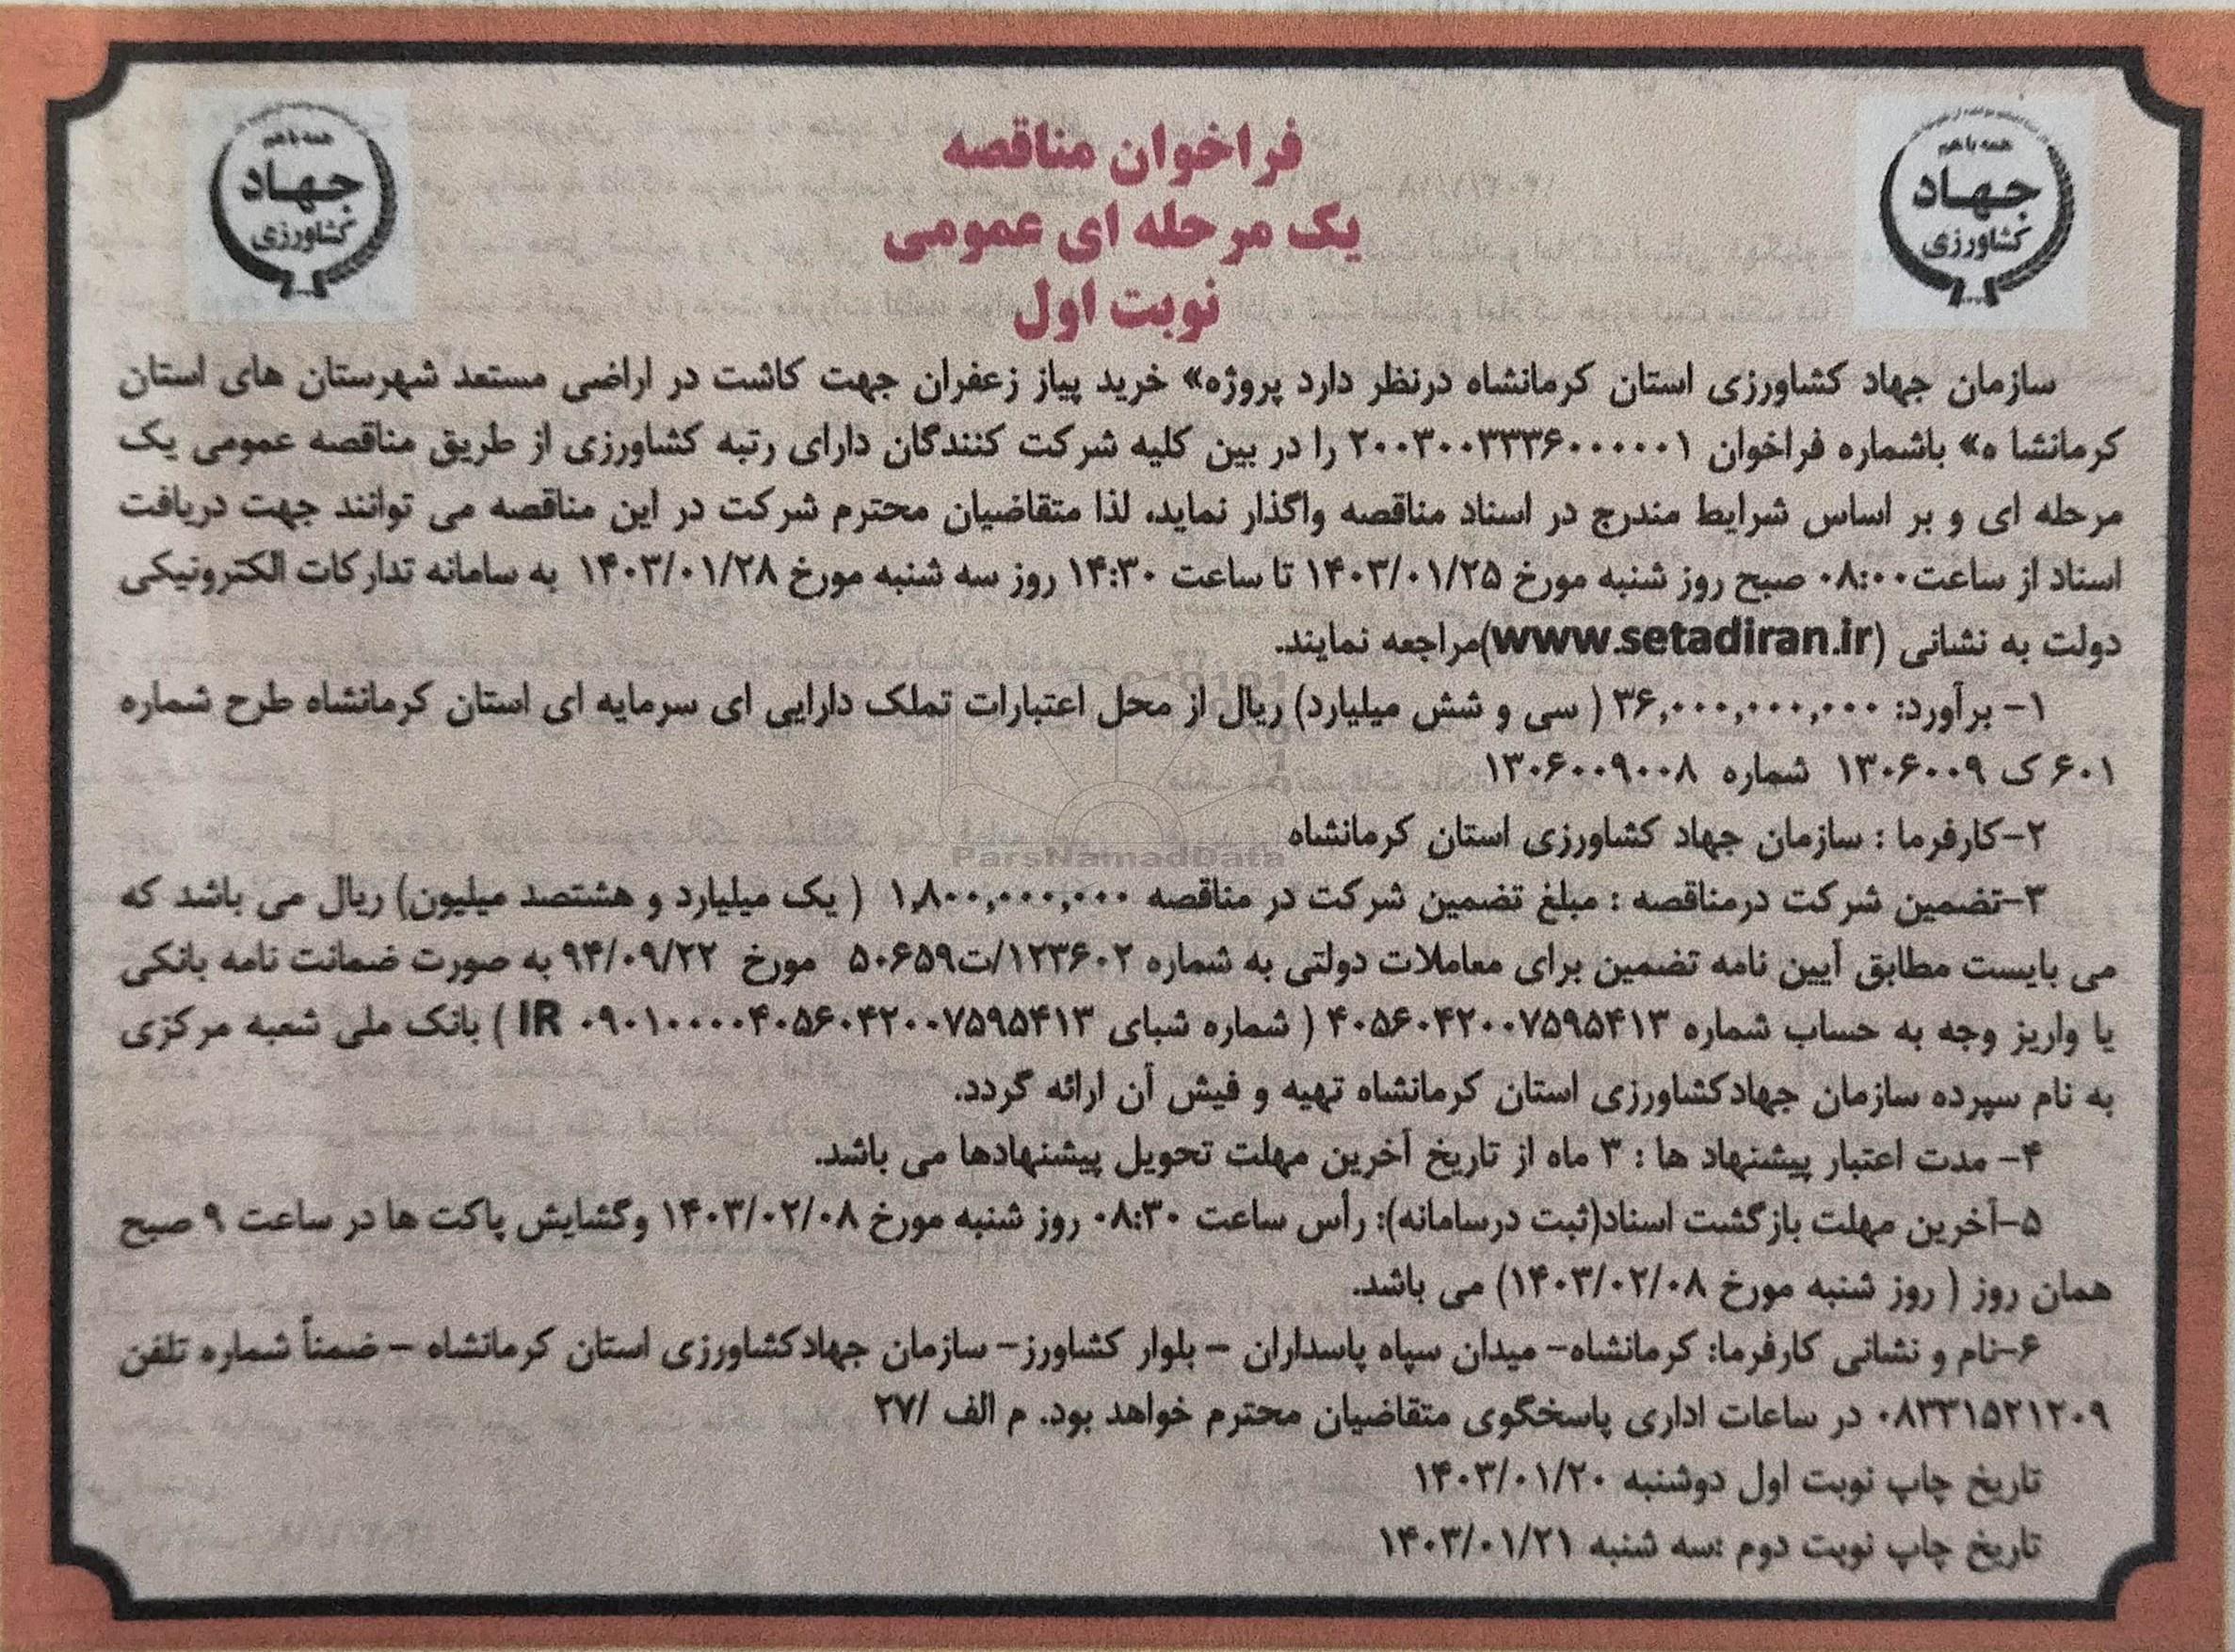 همه با هم
جهاد
کشاورزی
همه با هم
جهاد
کشاورزی
فراخوان مناقصه
یک مرحله ای عمومی
نوبت اول
سازمان جهاد کشاورزی استان کرمانشاه درنظر دارد پروژه» خرید پیاز زعفران جهت کاشت در اراضی مستعد شهرستان های استان
کرمانشا ه» باشماره فراخوان ۲۰۰۳۰۰۳۳۳۶۰۰۰۰۰۱ را در بین کلیه شرکت کنندگان دارای رتبه کشاورزی از طریق مناقصه عمومی یک
مرحله ای و بر اساس شرایط مندرج در اسناد مناقصه واگذار نماید، لذا متقاضیان محترم شرکت در این مناقصه می توانند جهت دریافت
اسناد از ساعت۰۸:۰۰ صبح روز شنبه مورخ ۱۴۰۳/۰۱/۲۵ تا ساعت ۱۴:۳۰ روز سه شنبه مورخ ۱۴۰۳/۰۱/۲۸ به سامانه تدارکات الکترونیکی
دولت به نشانی (www.setadiran.ir)مراجعه نمایند.
۱- برآورد: ۳۶,۰۰۰,۰۰۰,۰۰۰ ( سی و شش میلیارد) ریال از محل اعتبارات تملک دارایی ای سرمایه ای استان کرمانشاه طرح شماره
۶۰۱ ک ۱۳۰۶۰۰۹ شماره ۱۳۰۶۰۰۹۰۰۸
۲-کارفرما : سازمان جهاد کشاورزی استان کرمانشاه
ParsNamadData
۳-تضمین شرکت درمناقصه : مبلغ تضمین شرکت در مناقصه ۱,۸۰۰,۰۰۰,۰۰۰ ( یک میلیارد و هشتصد میلیون) ریال می باشد که
می بایست مطابق آیین نامه تضمین برای معاملات دولتی به شماره ۱۲۳۶۰۲/ت۵۰۶۵۹ مورخ ۹۴/۰۹/۲۲ به صورت ضمانت نامه بانکی
یا واریز وجه به حساب شماره ۴۰۵۶۰۴۲۰۰۷۵۹۵۴۱۳ ( شماره شبای IR ۰۹۰۱۰۰۰۰۴۰۵۶۰۴۲۰۰۷۵۹۵۴۱۳ ) بانک ملی شعبه مرکزی
به نام سپرده سازمان جهادکشاورزی استان کرمانشاه تهیه و فیش آن ارائه گردد.
۴- مدت اعتبار پیشنهاد ها : ۳ ماه از تاریخ آخرین مهلت تحویل پیشنهادها می باشد.
۵-آخرین مهلت بازگشت اسناد(ثبت درسامانه): رأس ساعت ۰۸:۳۰ روز شنبه مورخ ۱۴۰۳/۰۲/۰۸ وگشایش پاکت ها در ساعت ۹ صبح
همان روز ( روز شنبه مورخ ۱۴۰۳/۰۲/۰۸) می باشد.
۶-نام و نشانی کارفرما: کرمانشاه- میدان سپاه پاسداران - بلوار کشاورز- سازمان جهادکشاورزی استان کرمانشاه - ضمناً شماره تلفن
۰۸۳۳۱۵۲۱۲۰۹ در ساعات اداری پاسخگوی متقاضیان محترم خواهد بود. م الف /۲۷
تاریخ چاپ نوبت اول دوشنبه ۱۴۰۳/۰۱/۲۰
تاریخ چاپ نوبت دوم :سه شنبه ۱۴۰۳/۰۱/۲۱